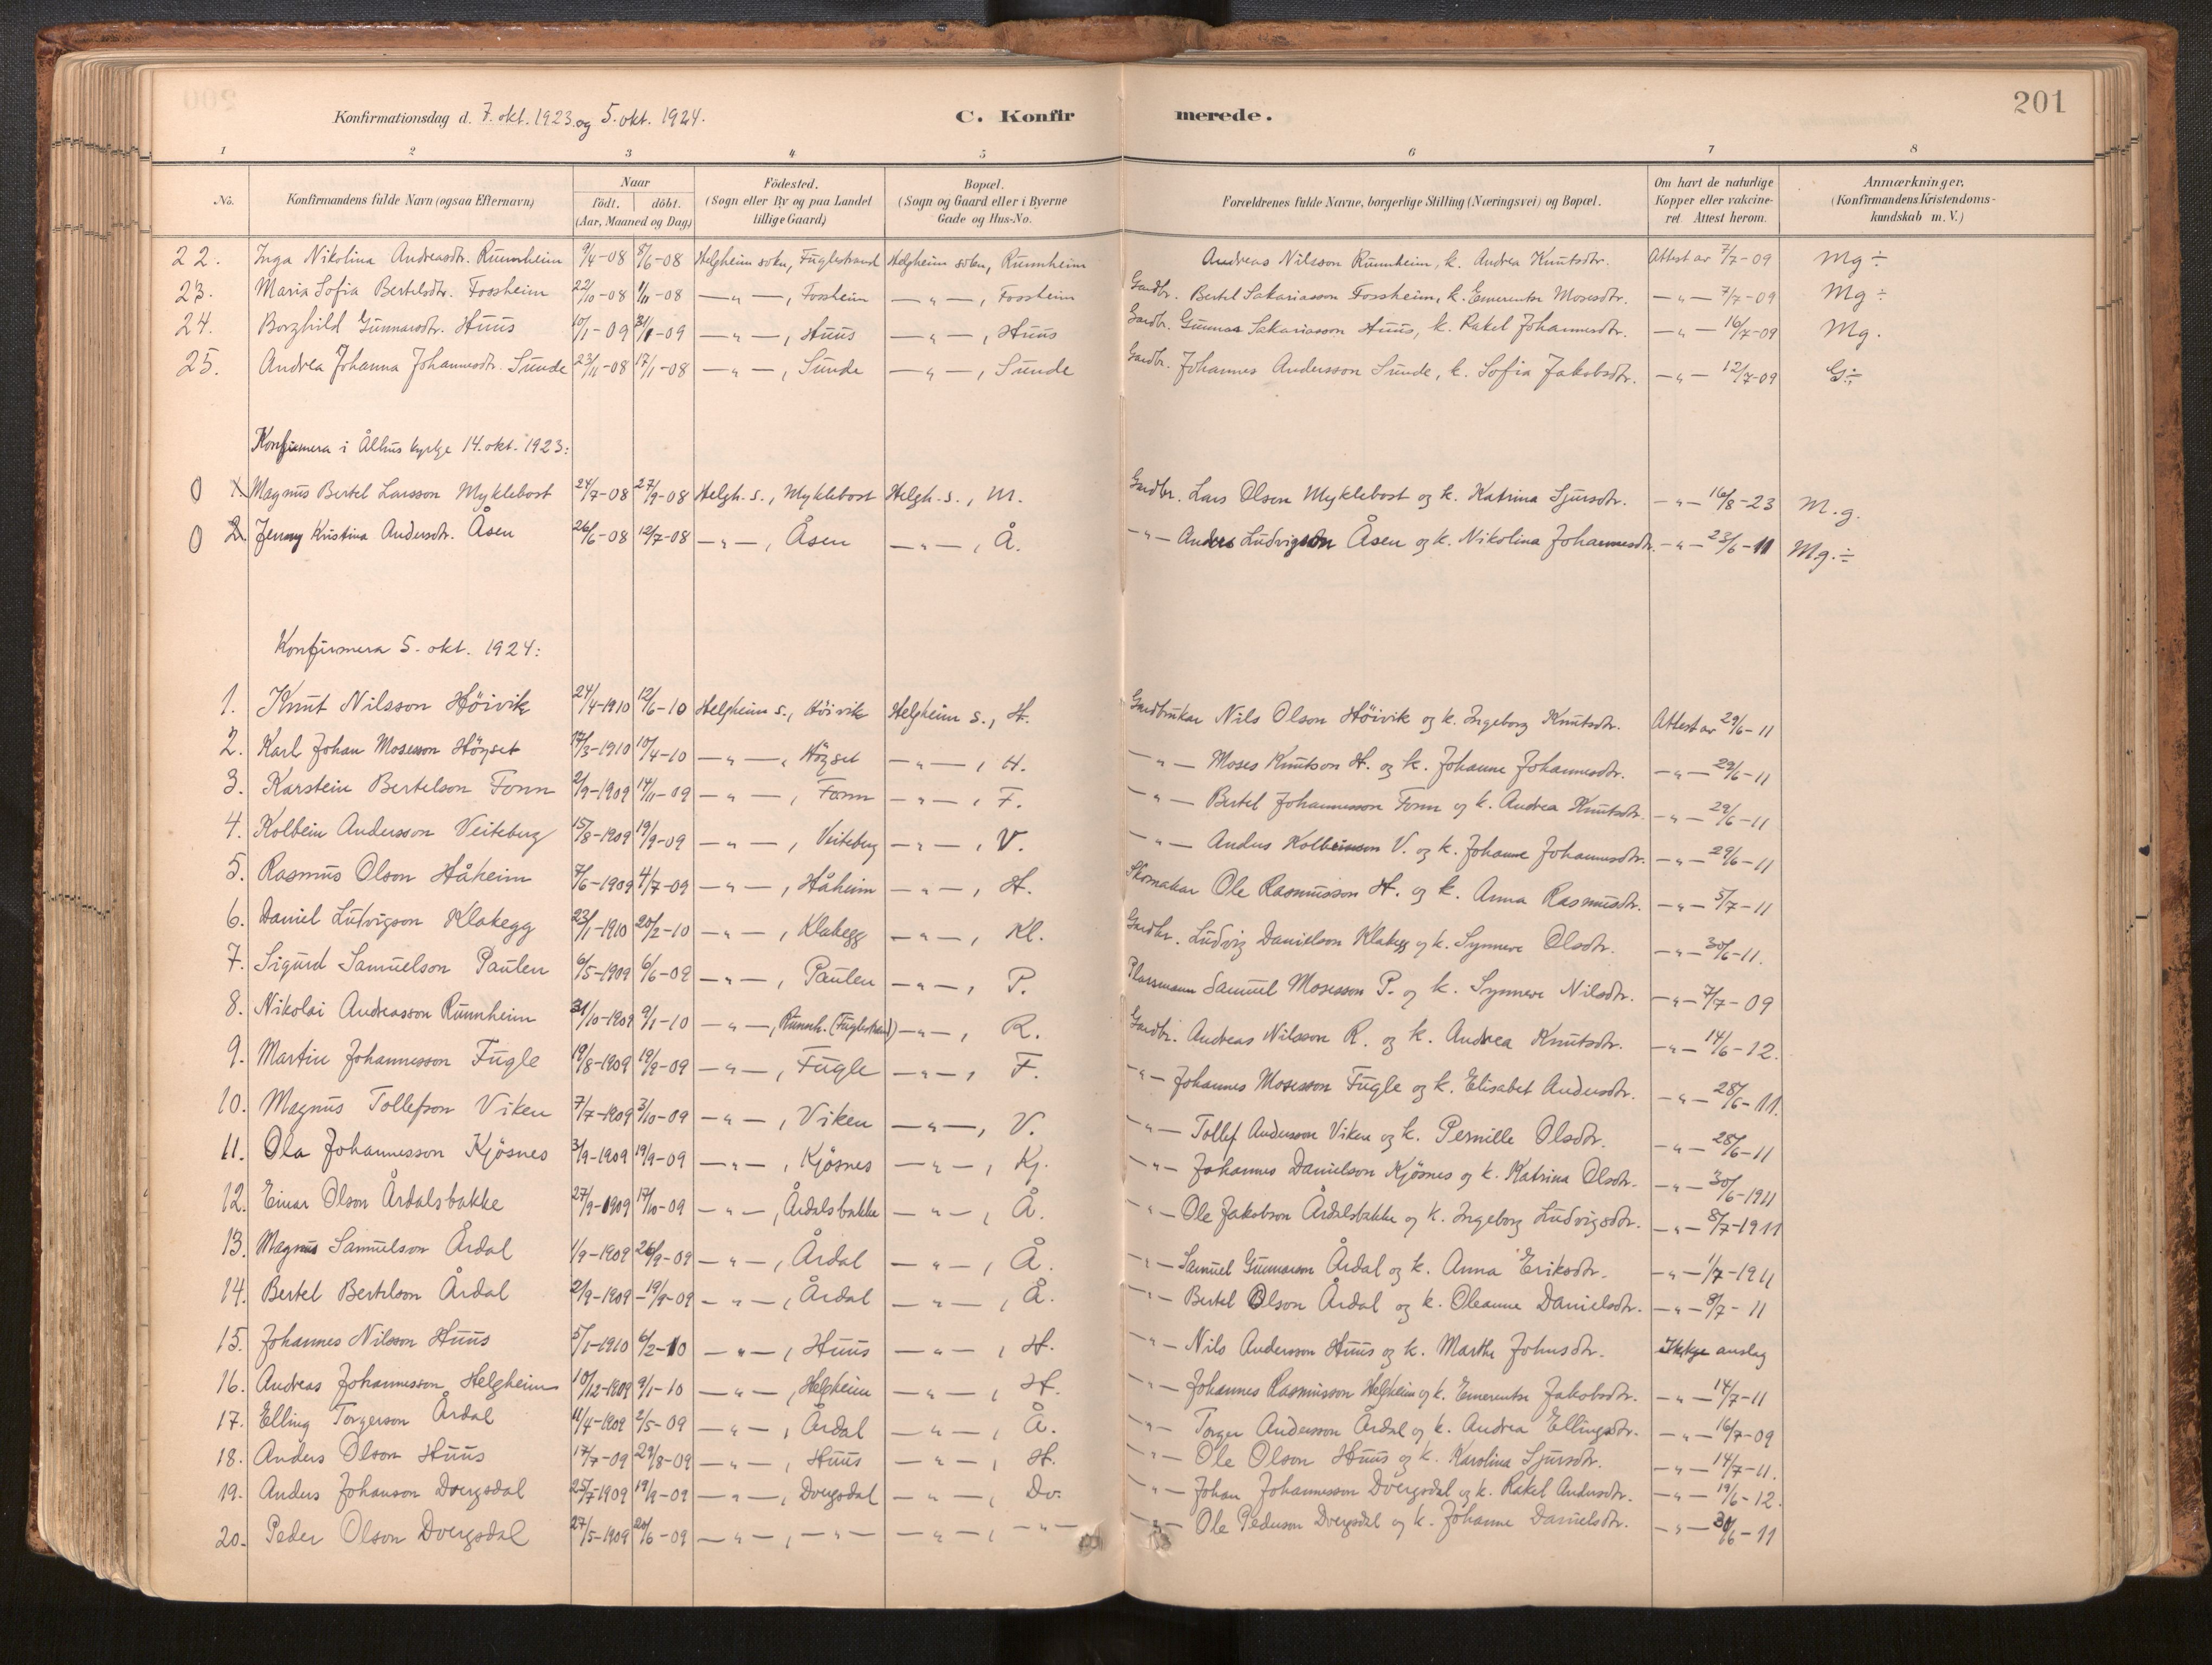 201
Konfirmationsdag d. 7. okt. 1923 og 5. okt. 1924.
C. Konfirmerede.
1 2 3 4 5 6 7 8
No. Konfirmandens fulde Navn (ogsaa Efternavn) Naar födt. döbt. (Aar, Maaned og Dag) Födested. (Sogn eller By og paa Landet tillige Gaard) Bopæl. (Sogn og Gaard eller i Byerne Gade og Hus-No. Forældrenes fulde Navne, borgerlige Stilling (Næringsvei) og Bopæl. Om havt de naturlige Kopper eller vaccineret. Attest herom. Anmærkninger. (Konfirmandens Kristendomskundskab m. V.)
22. Inga Nikolina Andreasdtr. Runnheim 9/4-08 8/6-08 Helgheim sokn, Fuglestrand Helgheim sokn, Runnheim Andreas Nilsson Runnheim, k. Andrea Knutsdtr. Attest av 7/7-09 Mg ÷
23. Maria Sofia Bertelsdtr. Fossheim 22/10-08 1/11-08 —"—, Fossheim —"—, Fossheim Gardbr. Bertel Sakariasson Fossheim, k. Emerentse Mosesdtr. —"— 7/7-09 Mg ÷
24. Borghild Gunnarsdtr. Huus 10/1-09 31/1-09 —"—, Huus —"—, Huus Gardbr. Gunnar Sakariasson Huus, k. Rakel Johannesdtr. —"— 16/7-09 Mg.
25. Andrea Johanna Johannesdtr. Sunde 23/11-08 17/1-08 —"—, Sunde —"—, Sunde Gardbr. Johannes Andersson Sunde, k. Sofia Jakobsdtr. —"— 12/7-09 G÷
Konfirmera i Ålhus kyrkje 14. okt. 1923:
0 1. Magnus Bertel Larsson Myklebost 24/7-08 27/9-08 Helgh. s., Myklebost Helgh. s., M. Gardbr. Lars Olsen Myklebost og k. Katrina Sjursdtr. —"— 16/8-23 M.g.
0 2. Jenny Kristina Andersdtr. Åsen 26/6-08 12/7-08 —"—, Åsen —"—, Å. —"— Anders Ludvigson Åsen og k. Nikolina Johannesdtr. —"— 23/6-11 Mg.÷
Konfirmera 5. okt. 1924:
1. Knut Nilsson Höivik 24/4-1910 12/6-10 Helgheim s., Höivik Helgheim s., H. Gardbrukar Nils Olson Höivik og k. Ingeborg Knutsdtr. Attest av 29/6-11
2. Karl Johan Mosesson Högset 17/3-1910 10/4-10 —"—, Högset —"—, H. —"— Moses Knutson H. og k. Johanne Johannesdtr. —"— 29/6-11
3. Karstein Bertelson Fonn 2/9-1909 14/11-09 —"—, Fonn —"—, F. —"— Bertel Johannesson Fonn og k. Andrea Knutsdtr. —"— 29/6-11
4. Kolbein Andersson Veiteberg 15/8-1909 19/9-09 —"—, Veiteberg —"—, V. —"— Anders Kolbeinson V. og k. Johanne Johannesdtr. —"— 29/6-11
5. Rasmus Olson Håheim 7/6-1909 4/7-09 —"—, Håheim —"—, H. Skomakar Ole Rasmusson H. og k. Anna Rasmusdtr. —"— 5/7-11
6. Daniel Ludvigson Klakegg 23/1-1910 20/2-10 —"—, Klakegg —"—, Kl. Gardbr. Ludvig Danielson Klakegg og k. Synneve Olsdtr. —"— 30/6-11.
7. Sigurd Samuelson Paulen 6/5-1909 6/6-09 —"—, Paulen —"—, P. Plassmann Samuel Mosesson P. og k. Synneve Nilsdtr. —"— 7/7-09
8. Nikolai Andreasson Runnheim 31/10-1909 9/1-10 —"—, Runnh. (Fuglestrand) —"—, R. Gardbr. Andreas Nilsson R. og k. Andrea Knutsdtr. —"— 14/6-12.
9. Martin Johannesson Fugle 19/8-1909 19/9-09 —"—, Fugle —"—, F. —"— Johannes Mosesson Fugle og k. Elisabet Andersdtr. —"— 28/6-11.
10. Magnus Tollefson Viken 7/7-1909 3/10-09 —"—, Viken —"—, V. —"— Tollef Andersson Viken og k. Pernille Olsdtr. —"— 28/6-11
11. Ola Johannesson Kjösnes 3/9-1909 19/9-09 —"—, Kjösnes —"—, Kj. —"— Johannes Danielson Kjösnes og k. Katrina Olsdtr. —"— 30/6-1911
12. Einar Olson Årdalsbakke 27/9-1909 17/10-09 —"—, Årdalsbakke —"—, Å. —"— Ole Jakobson Årdalsbakke og k. Ingeborg Ludvigsdtr. —"— 8/7-1911
13. Magnus Samuelson Årdal 1/9-1909 26/9-09 —"—, Årdal —"—, Å. —"— Samuel Gunnarson Årdal og k. Anna Eriksdtr. —"— 1/7-1911
14. Bertel Bertelson Årdal 2/9-1909 19/9-09 —"—, Årdal —"—, Å. —"— Bertel Olson Årdal og k. Oleanne Danielsdtr. —"— 8/7-11
15. Johannes Nilsson Huus 5/1-1910 6/2-10 —"—, Huus —"—, H. —"— Nils Andersson Huus og k. Marthe Johnsdtr. Ikkje anslag
16. Andreas Johannesson Helgheim 10/12-1909 9/1-10 —"—, Helgheim —"—, H. —"— Johannes Rasmusson Helgheim og k. Emerentse Jakobsdtr. —"— 14/7-11
17. Elling Torgerson Årdal 11/4-1909 2/5-09 —"—, Årdal —"—, Å. —"— Torger Andersson Årdal og k. Andrea Ellingsdtr. —"— 16/7-09
18. Anders Olson Huus 17/7-09 29/8-09 —"—, Huus —"—, H. —"— Ole Olson Huus og k. Karolina Sjursdtr. —"— 14/7-11.
19. Anders Johanson Dvergsdal 25/7-1909 19/9-09 —"—, Dvergsdal —"—, Dv. —"— Johan Johannesson Dvergsdal og k. Rakel Andersdtr. —"— 19/6-12.
20. Peder Olson Dvergsdal 27/5-1909 20/6-09 —"—, —"— —"—, —"— —"— Ole Pederson Dvergsdal og k. Johanne Danielsdtr. —"— 30/6-11